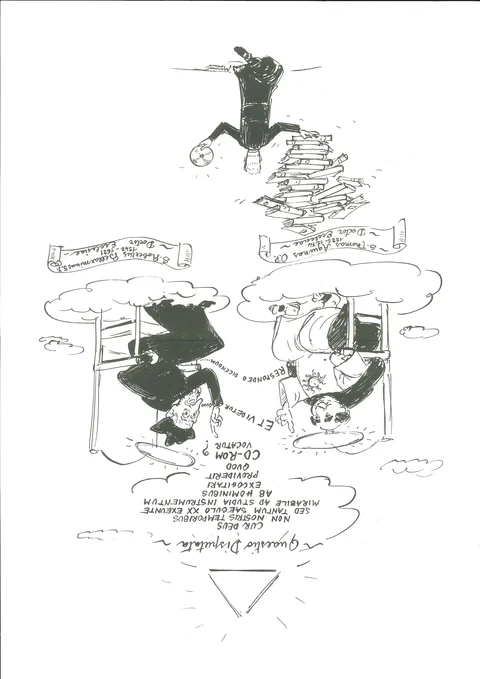 ~ Quaestio Disputata ~
CUR DEUS
NON NOSTRIS TEMPORIBUS
SED TANTUM SAECULO XX EXEUNTE
MIRABILE AD STUDIA INSTRUMENTUM
AB HOMINIBUS
EXCOGITARI
PROVIDERIT
QUOD
CD-ROM
VOCATUR ?
ET VIDETUR QUOD....
RESPONDEO DICENDUM......
S. Thomas Aquinas O.P.
1225-1274
~ Doctor Ecclesiae ~
S. Robertus Bellarminus S.J.
1542-1621
~ Doctor Ecclesiae ~